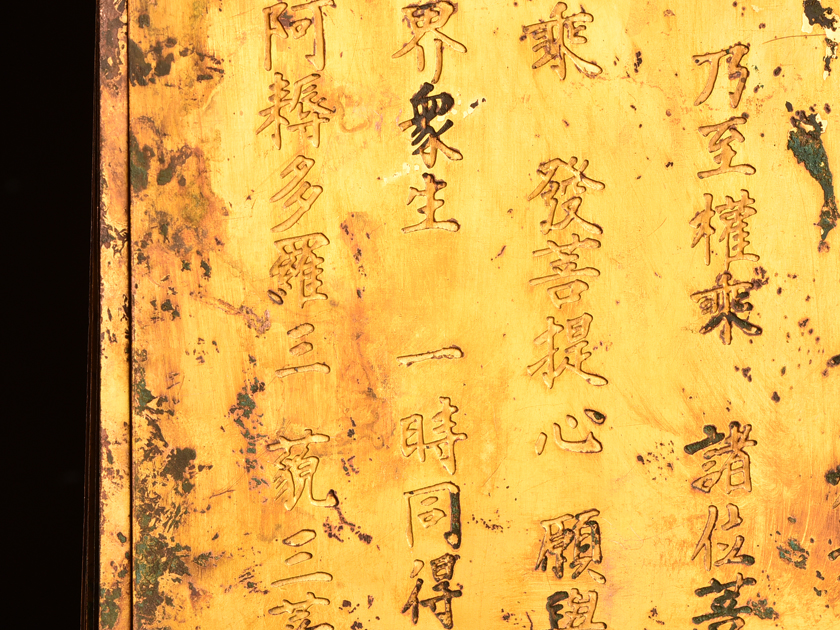 乃至權乘 諸位菩
乘 發菩提心 願與
界衆生 一時同得
阿耨多羅三藐三菩